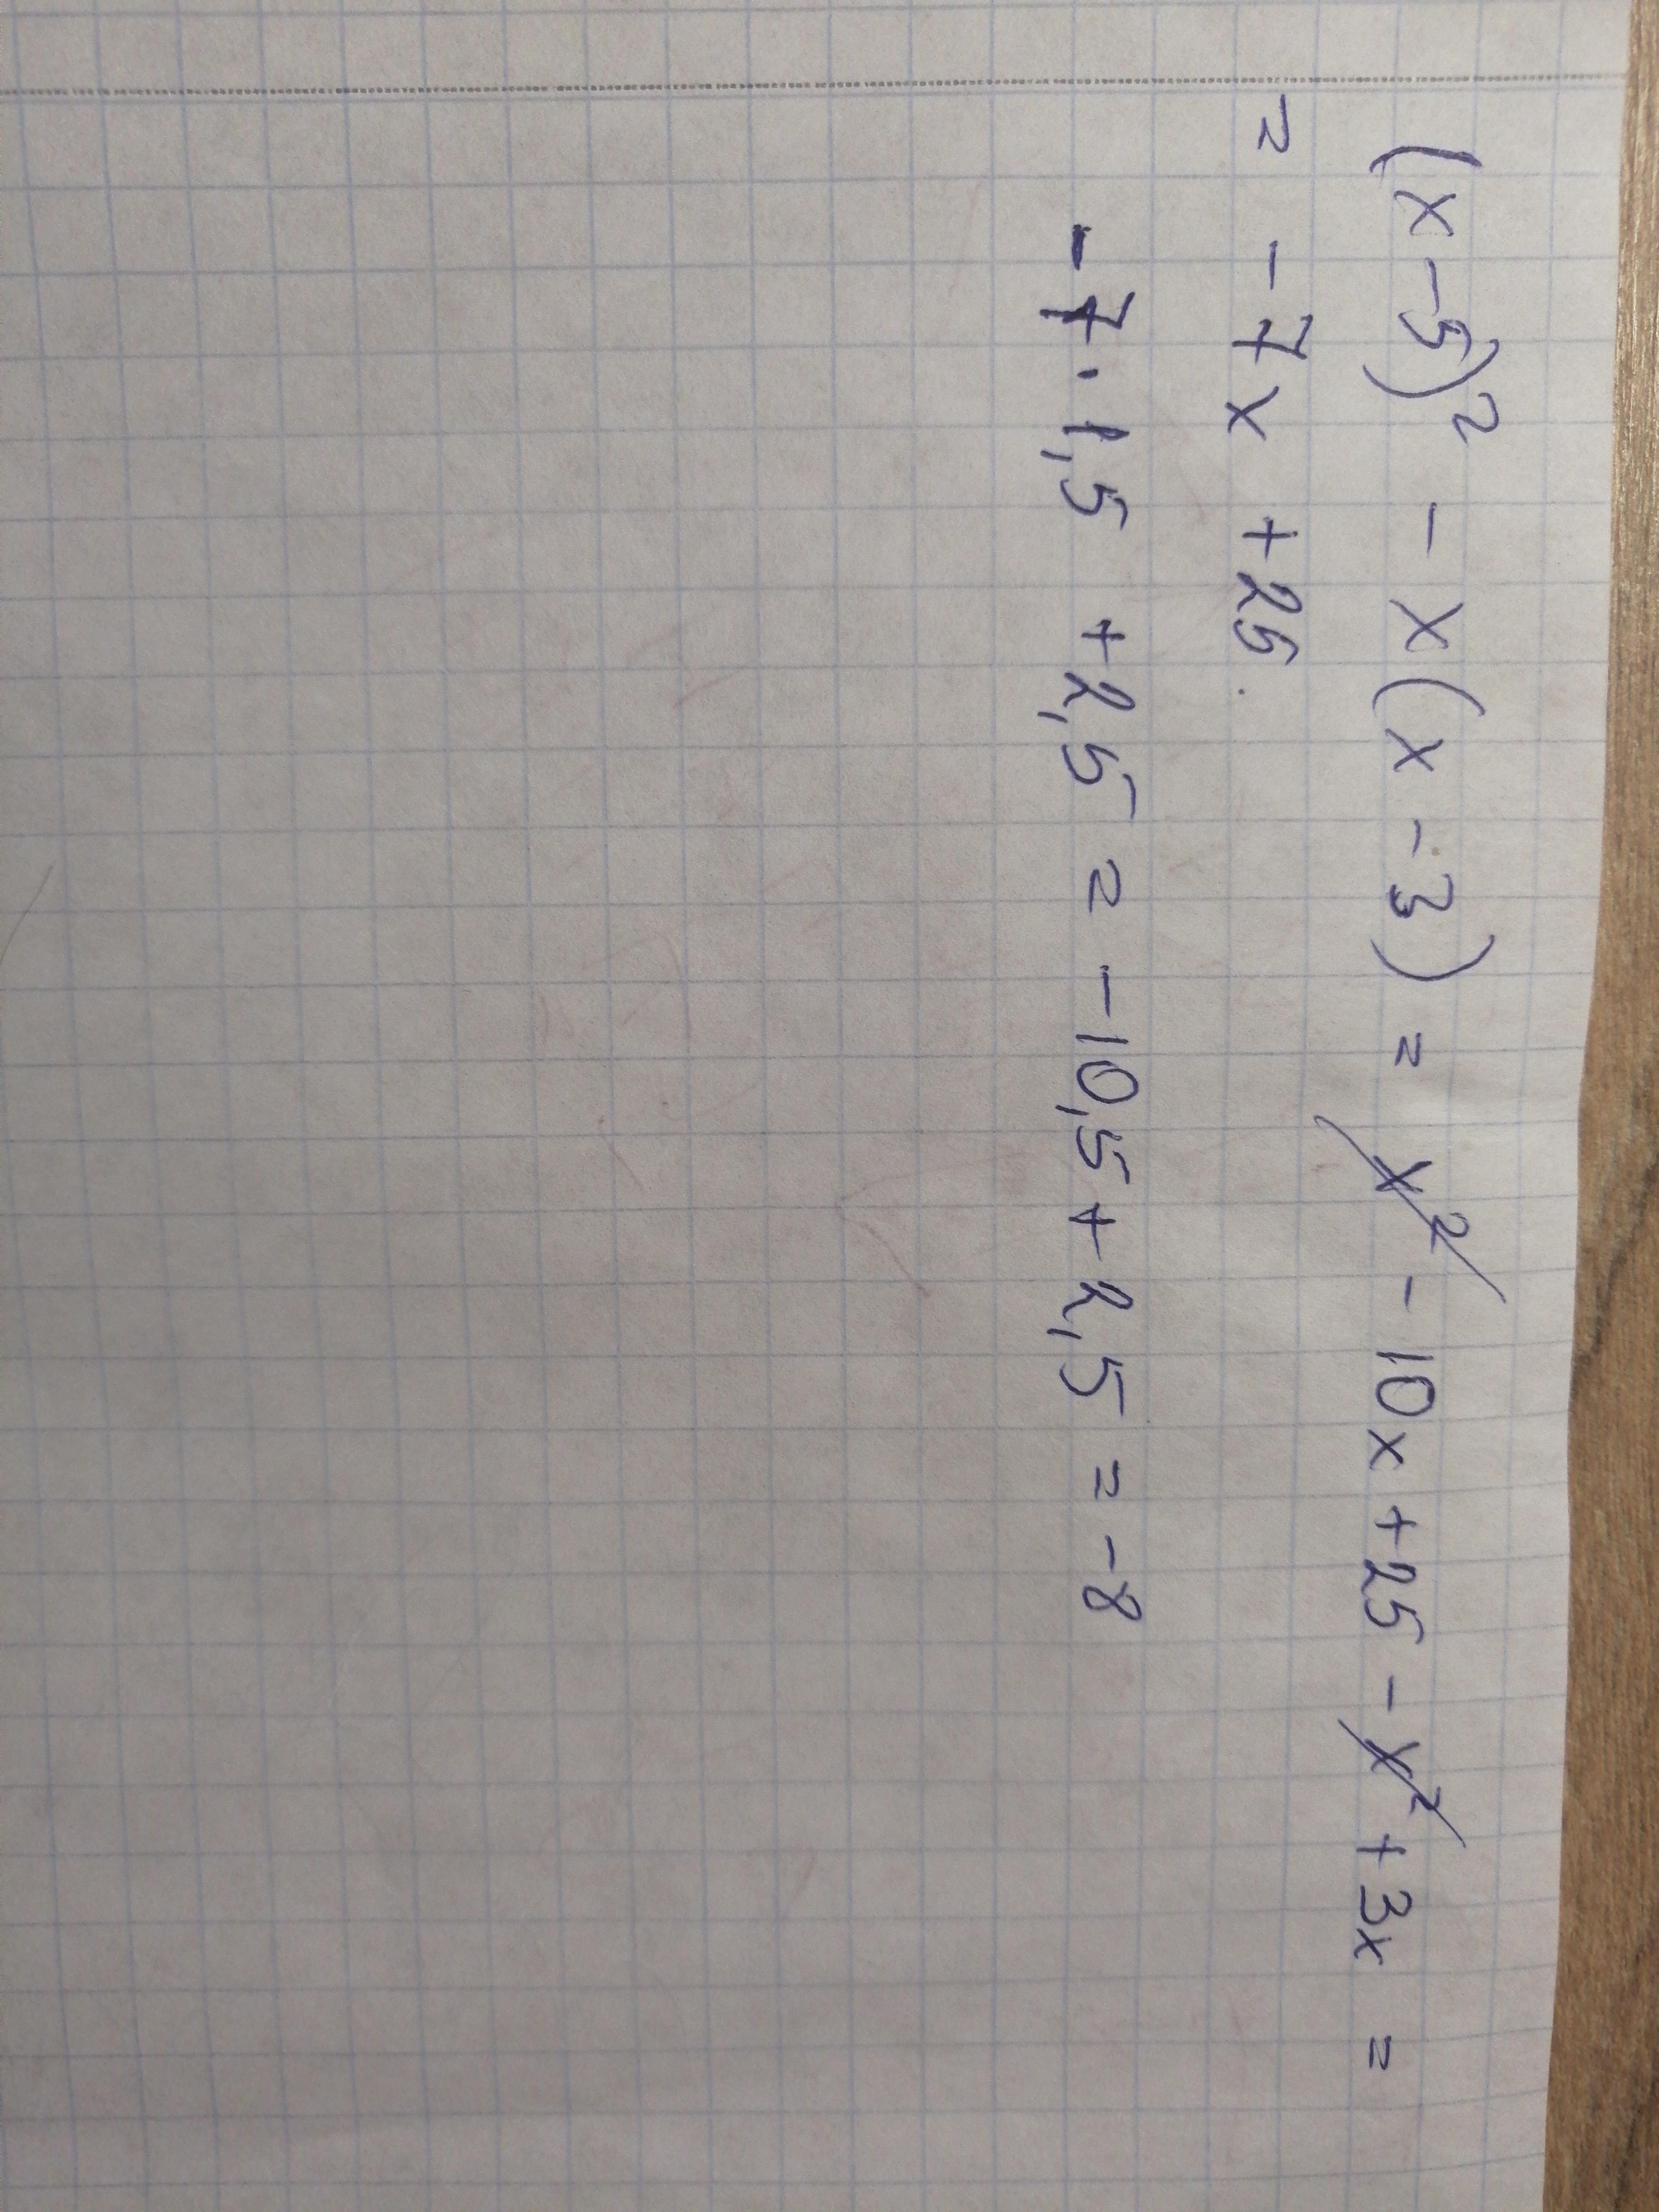 (x-5)² - x(x-3) = x² - 10x + 25 - x² + 3x =
= -7x + 25.
-7·1,5 + 2,5 = -10,5 + 2,5 = -8